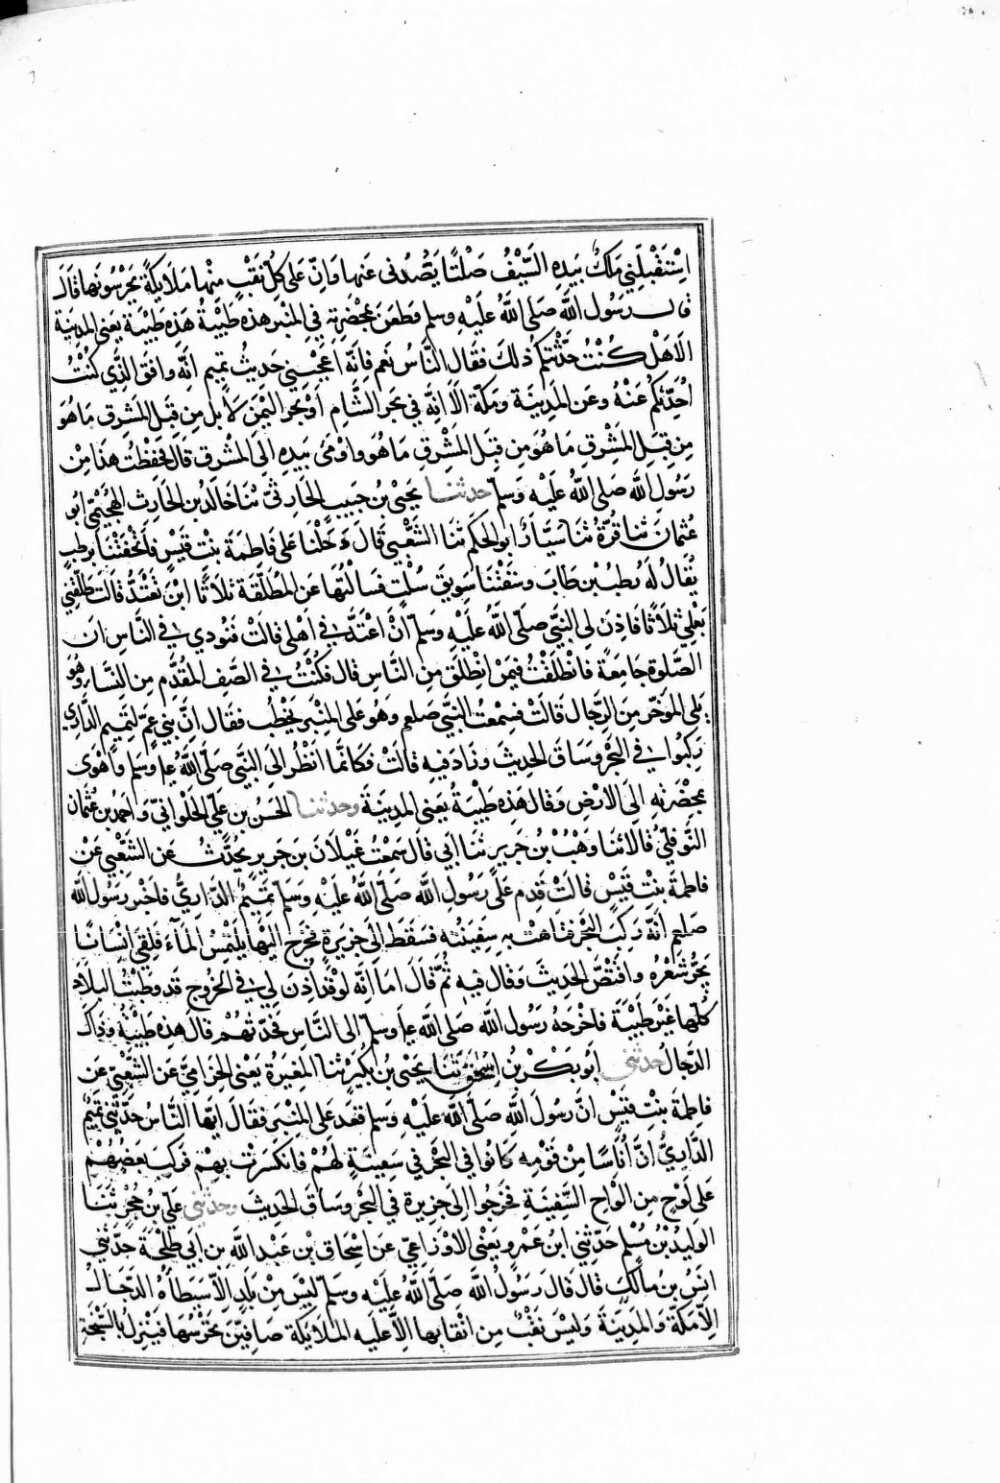 اِسْتَقْبَلَنِي مَلَكٌ بِيَدِهِ السَّيْفُ صَلْتًا يَصُدُّنِي عَنهَا وَاِنَّ عَلَى كُلِّ نَقْبٍ مِنْهَا مَلَايِكَةً يَحْرُسُونَهَا قَالَت
قال رَسُول اللّٰه صَلَّى اللّٰهُ عَلَيْهِ وسلم وطعن بمخْصَرته فِي المنْبر هذه طَيْبَةُ هَذِه طَيْبَة يَعنى المدِينَة
اَلَاهَلْ كُنْتُ حَدَّثْتكم ذلكَ فقال النَّاسُ نَعم فاِنّه اَعْجَبَنِي حَدِيثُ تَمِيم اَنَّه وافق الذِّي كُنْتُ
اُحَدِّثكُم عَنْهُ وعن المَدِينَة ومَكّة اَلَا اِنّه فِي بحر الشَّامِ اَوْ بحر اليَمَنِ لَا بَل مِن قِبَل المَشرق مَا هُوَ
مِن قِبَلِ المَشْرِق مَا هُوَ مِن قِبَلِ المَشْرِقِ مَا هُوَ وَاَوْمَى بِيَدِهِ اِلَى المَشْرِق قَالَت فحَفِظْتُ هَذَا مِنْ
رَسُولِ اللّٰه صَلَى اللّٰهُ عَلَيْهِ وَسلم حدثنا يَحْيَى بْن حَبِيبٍ الحَارِثيّ ثَنَا خَالدُ بن الحَارِث الهُجَيْمِيّ ابو
عُثمَانَ ثنا قُرّةُ ثنا سَيَّارٌ ابوالحَكَم ثنَا الشَّعْبي قَالَ دَخَلْنَا عَلى فَاطِمةَ بنْت قَيْسٍ فَاَتْحَفَتْنَا برُطبٍ
يُقَالُ لَهُ رُطَبُ بْن طَابَ وسَقَتْنَا سَوِيقَ سُلْتٍ فسَالْتهَا عَن المُطَلَّقَة ثلَاثًا اَيْنَ تَعْتَدُّ قَالَت طَلَّقَنِي
بَعْلي ثَلَاثًا فَاَذِنَ لى النَّبِيُّ صَلّى اللّٰهُ عَلَيْهِ وسلم اَنْ اَعْتَدَّ في اَهْلِى قالتْ فَنُودِيَ في النَّاس ان
الصَّلٰوةَ جَامِعَةً فانْطَلَقْتُ فِيمَن انْطَلَقَ مِن النَّاسِ قال فكُنْتُ في الصَّفِ المُقَدَّمِ مِن النِّسَا وهُو
يَلِى المؤَخّر مِنَ الرِّجَال قَالَتْ فسَمِعْتُ النَّبِيَّ صَلعم وهُوَ عَلى المِنْبَرِ يَخْطُبُ فقَال اِنّ بَنِي عَمٍّ لتَمِيمٍ الدَّارِي
رَكِبُوا في البَحْر وسَاق الحَدِيثَ وزَادَ فيه قالتْ فَكَانّما اَنْظُر اِلَى النَّبِي صَلَّى اللّٰهُ عليه وسَلم وَاَهْوَى
بمِخْصَرَتِهِ اِلَى الاَرْضِ وَقال هَذِهِ طَيْبَةُ يَعنى المدِينَةَ وحدثنا الحَسَنُ بن عَليّ الحُلوانيّ وَاَحمدُ بن عُثمان
النَّوفليّ قَالَا ثنا وَهْبُ بْنُ جَرِيرٍ ثنا اَبي قَالَ سَمِعْتُ غَيْلَانَ بنَ جَريرٍ يُحَدِّثُ عَن الشَّعْبيّ عَنْ
فاطمةَ بِنْت قَيْسٍ قَالتْ قَدِم عَلَى رَسُولِ اللّٰه صَلّى اللّٰهُ عَلَيْهِ وَسَلّم تَمِيمٌ الدَّارِيُّ فاَخْبَر رَسُولَ اللّٰه
صَلعم اَنّهُ رَكبَ البَحْرَ فَتَاهتْ بِهِ سَفِينَتُهُ فسَقَطَ اِلَى جَزيرَةٍ فخرج اِليْها يَلْتَمِسُ المَآءَ فلَقِيَ اِنْسانًا
يَجُرُّ شَعْرُه واقْتَصَّ الحَدِيثَ وقال فيه ثُمَّ قَالَ اَمَا اِنّه لَوْ قَد اُذِنَ لِي في الخُرُوجِ قد وطِئتُ البلَادَ
كلّها غَيْرَ طَيْبَةَ فاَخْرَجَهُ رَسُولُ اللّٰه صَلى اللّٰه عليه وسلم اِلى النَّاسِ فحَدّثهُمْ قالَ هَذِه طَيْبةُ وذاكَ
الدَّجالُ حدثنى اَبُو بَكْرِ بنُ اِسْحٰقَ ثَنَا يَحيى بن بُكيْرٍ ثنا المغِيرَةُ يَعْنى الحِزَامِيّ عَن الشَّعْبِيّ عَن
فاطِمة بِنْتِ قَيْسٍ انّ رَسُولَ اللّٰهِ صَلّى اللّٰه عَلَيْهِ وَسَلم قعَد عَلى المنْبَر فقَالَ اَيّهَا النَّاسُ حَدّثَنِي تَمِيمٌ
الدَّارِيُّ اَنَّ اُنَاسًا مِنْ قَوْمِه كَانُوا فِي البَحْر فِي سَفِينَةٍ لَهُمْ فَانكَسَرَتْ بهِمْ فَرَكِبَ بَعضُهُمْ
عَلى لَوْحٍ مِن اَلْواحِ السَّفِينَةِ فخَرَجُوا اِلَى جَزِيرةٍ فِي البَحْر وسَاقَ الحَدِيثَ وحدثنى عَلِيّ بنُ حُجْرٍ ثَنَا
الوَليدُ بْنُ مُسْلم حَدّثنِي ابنَ عَمْرٍو يَعْنى الاَوْزَاعِيّ عَن اِسْحَاق بن عَبْدِ اللّٰهِ بن اَبي طَلحَة حَدّثَنِي
اَنَسُ بن مالِكٍ قَالَ قَالَ رَسُولُ اللّٰه صَلّى اللّٰهُ عَلَيْهِ وسَلّم لَيْسَ مِنْ بَلدٍ اِلّا سَيَطاَهُ الدَّجّالُ
اِلّا مَكّةَ وَالمدِينَةَ وَليْس نَقْبٌ مِن اَنْقَابِهَا اِلّا عَلَيه المَلَايَكَة صَافِّينَ تَحْرُسُهَا فَيَنْزِلُ بالسَّبخَةِ